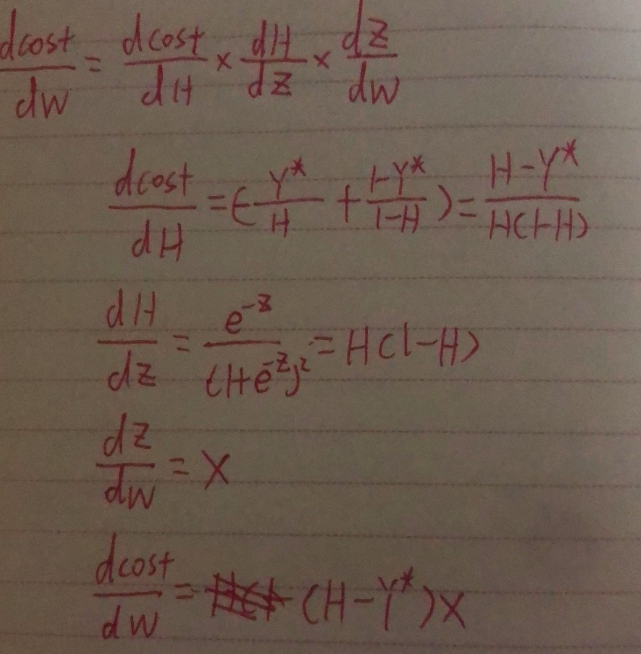 dcost/dw = dcost/dH × dH/dz × dz/dw
dcost/dH = (-Y*/H + 1-Y*/1-H) = H-Y*/H(1-H)
dH/dz = e^-z/(1+e^-z)^2 = H(1-H)
dz/dw = X
dcost/dw = (H-Y*)X